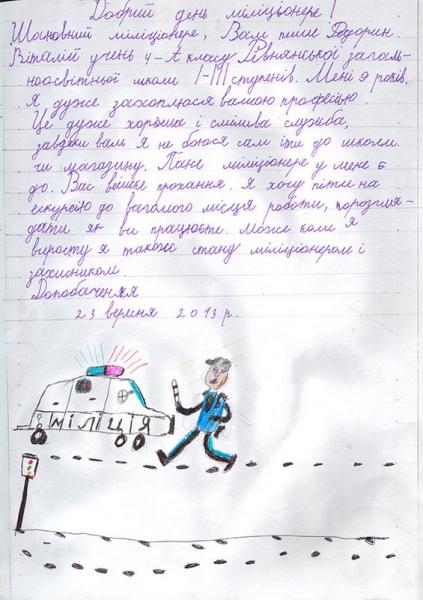 Добрий день міліціонере!
Шановний міліціонере, Вам пише Федорин.
Віталій учень 4-А класу Рівнянської загаль-
ноосвітньої школи I-III ступенів. Мені 9 років.
Я дуже захоплююся вашою професією.
Це дуже хороша і смілива служба,
завдяки вам я не боюся сам іти до школи
чи магазину. Пане міліціонере у мене є
до. Вас прохання. Я хочу піти на
екскурсію до вашого місця роботи, порозгля-
дати як ви працюєте. Може коли я
виросту я також стану міліціонером і
захисником.
Допобачення
23 вересня 2013 р.
МІЛІЦІЯ